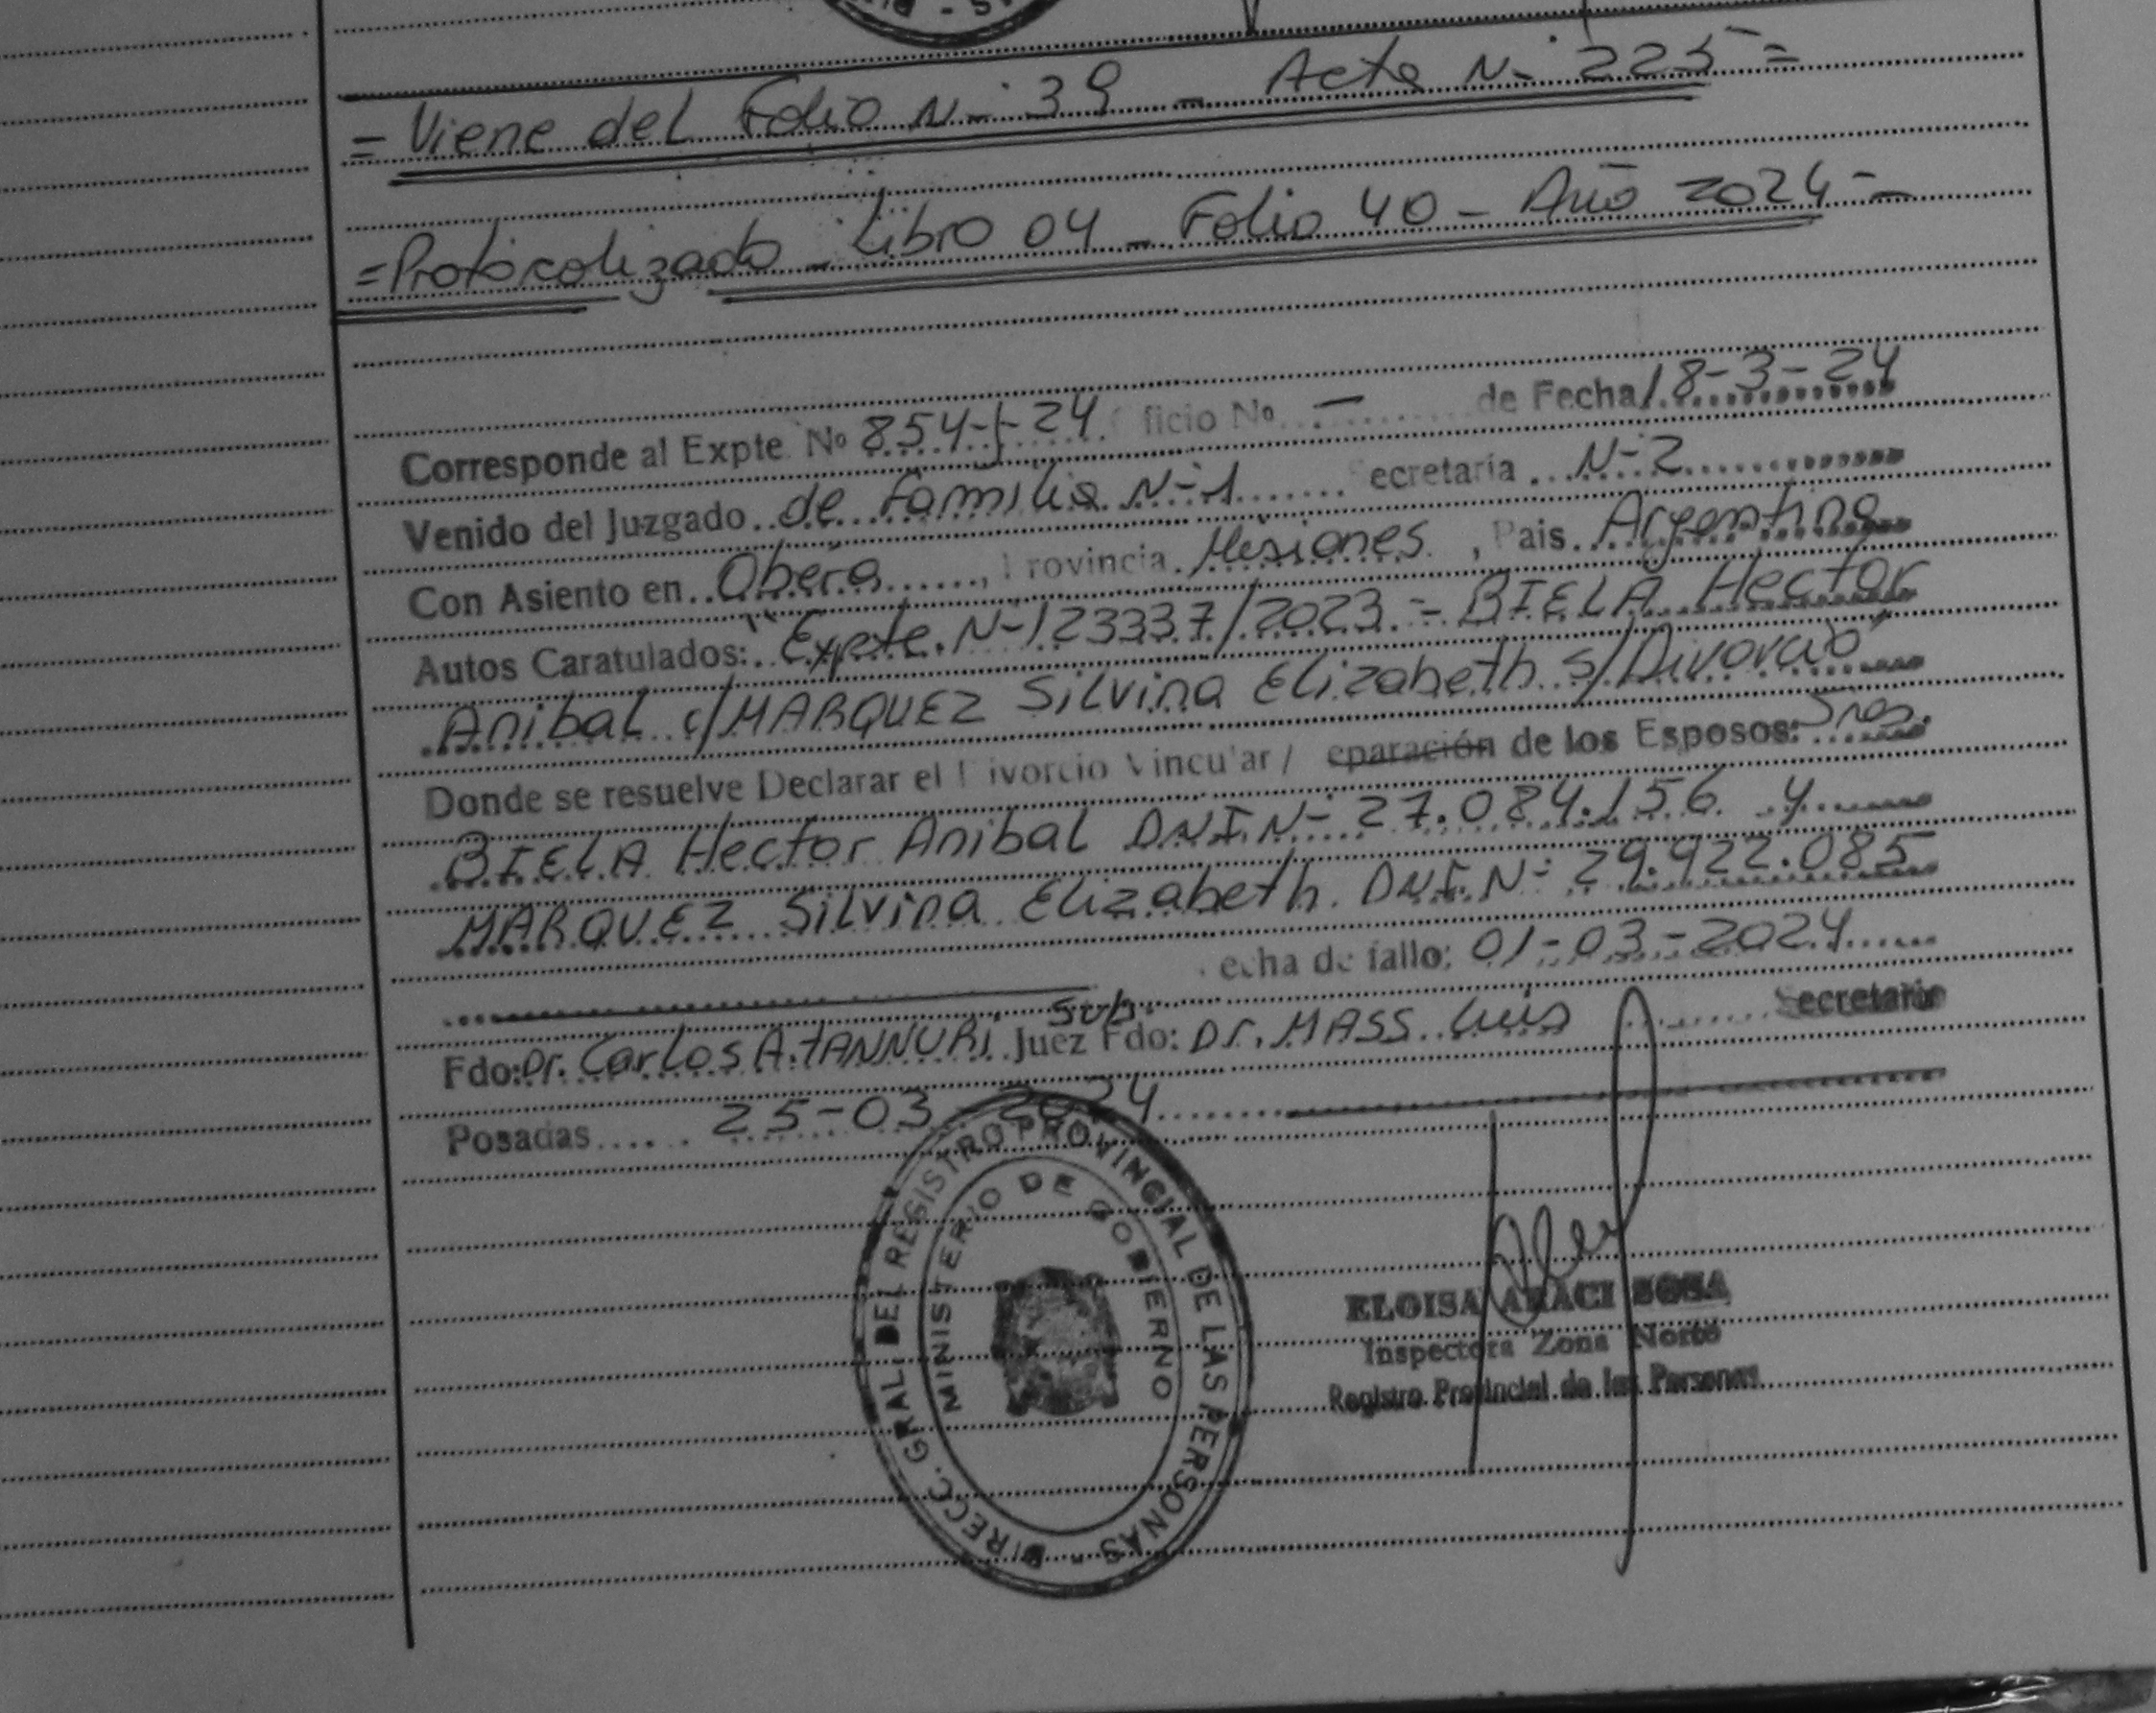 = Viene del Folio N- 39 - Acta N- 225 =
= Protocolizado - Libro 04 - Folio 40 - Año 2024 -
Corresponde al Expte. Nº 854-J-24 ficio Nº - de Fecha 18-3-24
Venido del Juzgado de Familia N-1 ecretaría N-2
Con Asiento en Oberá, rovincia Misiones, Pais Argentina
Autos Caratulados: "Expte. N-123337/2023 - BIELA Hector
Anibal c/MARQUEZ Silvina Elizabeth s/Divorcio"
Donde se resuelve Declarar el ivorcio Vincular / eparación de los Esposos: Sres.
BIELA Hector Anibal DNI.N- 27.084.156 y
MARQUEZ Silvina Elizabeth DNI.N- 29.922.085
echa de fallo: 01-03-2024
Fdo: Dr. Carlos A. TANNURI Juez Fdo: Dr. MASS Luis Sub. Secretario
Posadas 25-03-2024
DIRECC. GRAL. DEL REGISTRO PROVINCIAL DE LAS PERSONAS -
MINISTERIO DE GOBIERNO
ELOISA ARACI SOSA
Inspectora Zona Norte
Registro Provincial de las Personas